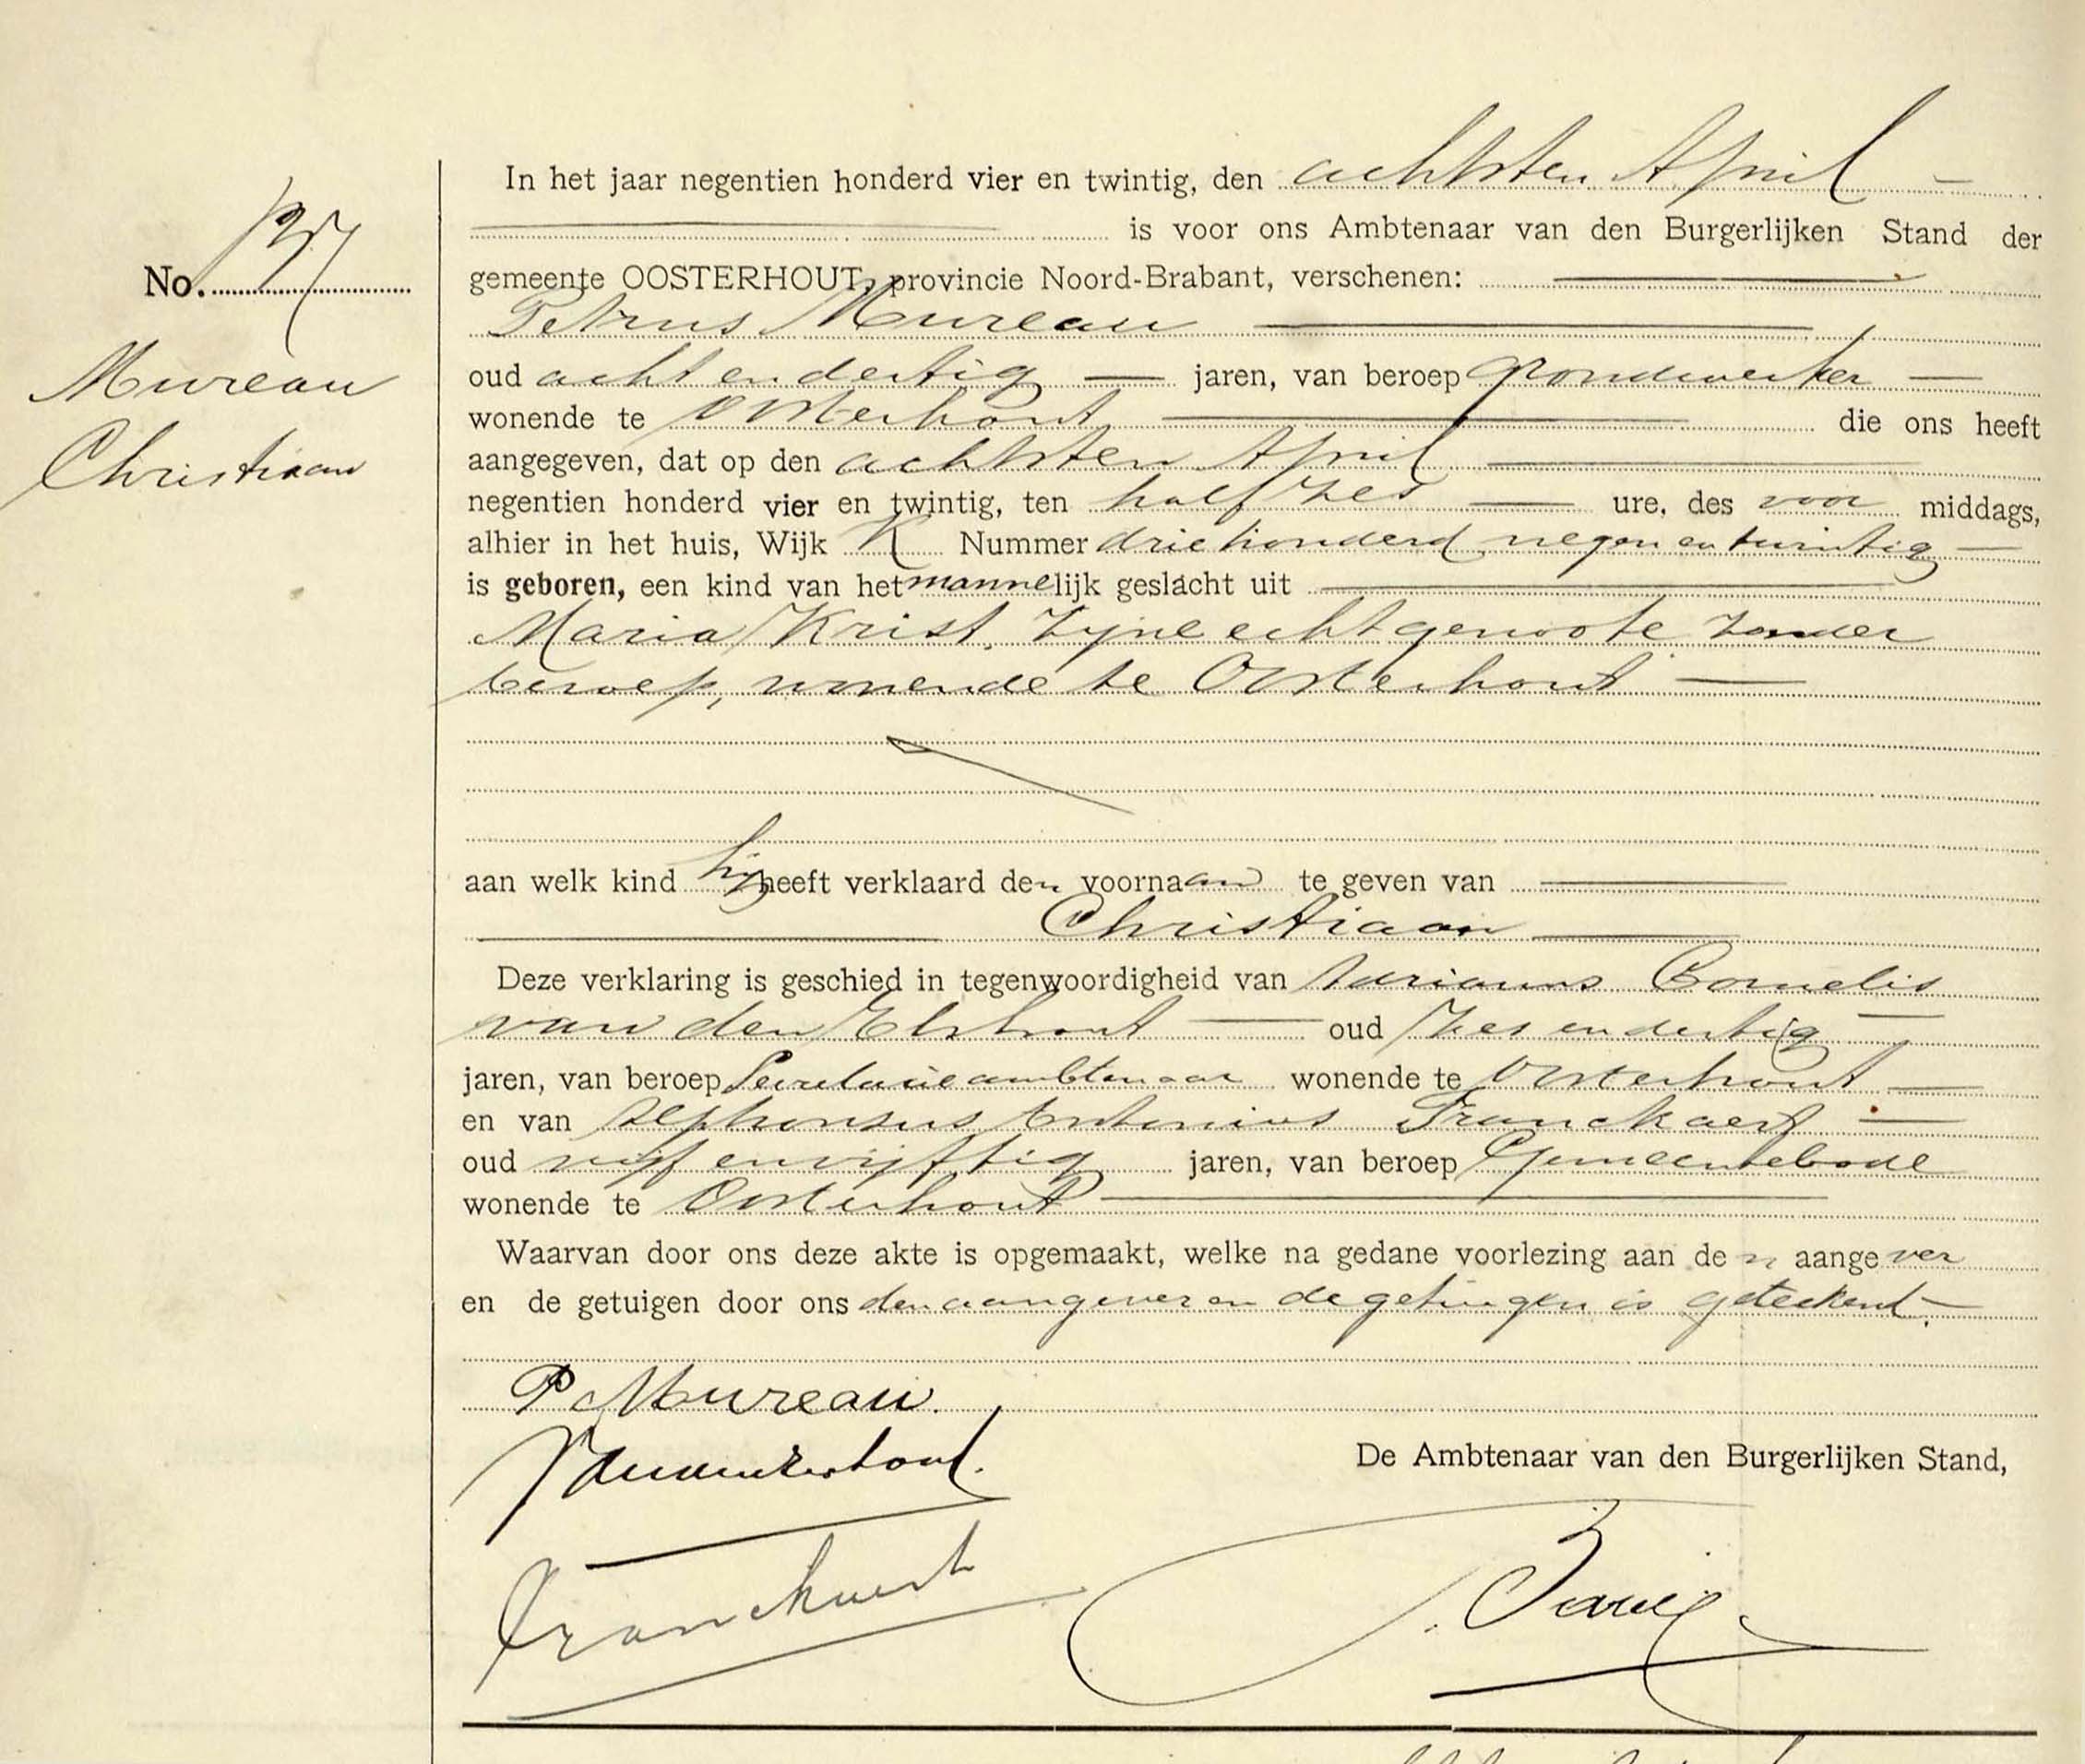 In het jaar negentien honderd vier en twintig, den achtsten April
is voor ons Ambtenaar van den Burgerlijken Stand der
No. 137
gemeente OOSTERHOUT, provincie Noord-Brabant, verschenen:
Petrus Mureau
Mureau
oud acht en dertig jaren, van beroep grondwerker
wonende te Oosterhout die ons heeft
Christiaan
aangegeven, dat op den achtsten April
negentien honderd vier en twintig, ten half zes ure, des voor middags,
alhier in het huis, Wijk K Nummer driehonderd negen en twintig
is geboren, een kind van het mannelijk geslacht uit
Maria Krist, zijne echtgenoote zonder
beroep, wonende te Oosterhout
aan welk kind hij heeft verklaard den voornaam te geven van
Christiaan
Deze verklaring is geschied in tegenwoordigheid van Adrianus Cornelis
van den Elshout oud zes en dertig
jaren, van beroep Secretarieambtenaar wonende te Oosterhout
en van Alphonsus Antonius Franckaert
oud vijf en vijftig jaren, van beroep Gemeentebode
wonende te Oosterhout
Waarvan door ons deze akte is opgemaakt, welke na gedane voorlezing aan de n aangever
en de getuigen door ons den aangever en de getuigen is geteekend.
P Mureau.
De Ambtenaar van den Burgerlijken Stand,
Franckaert